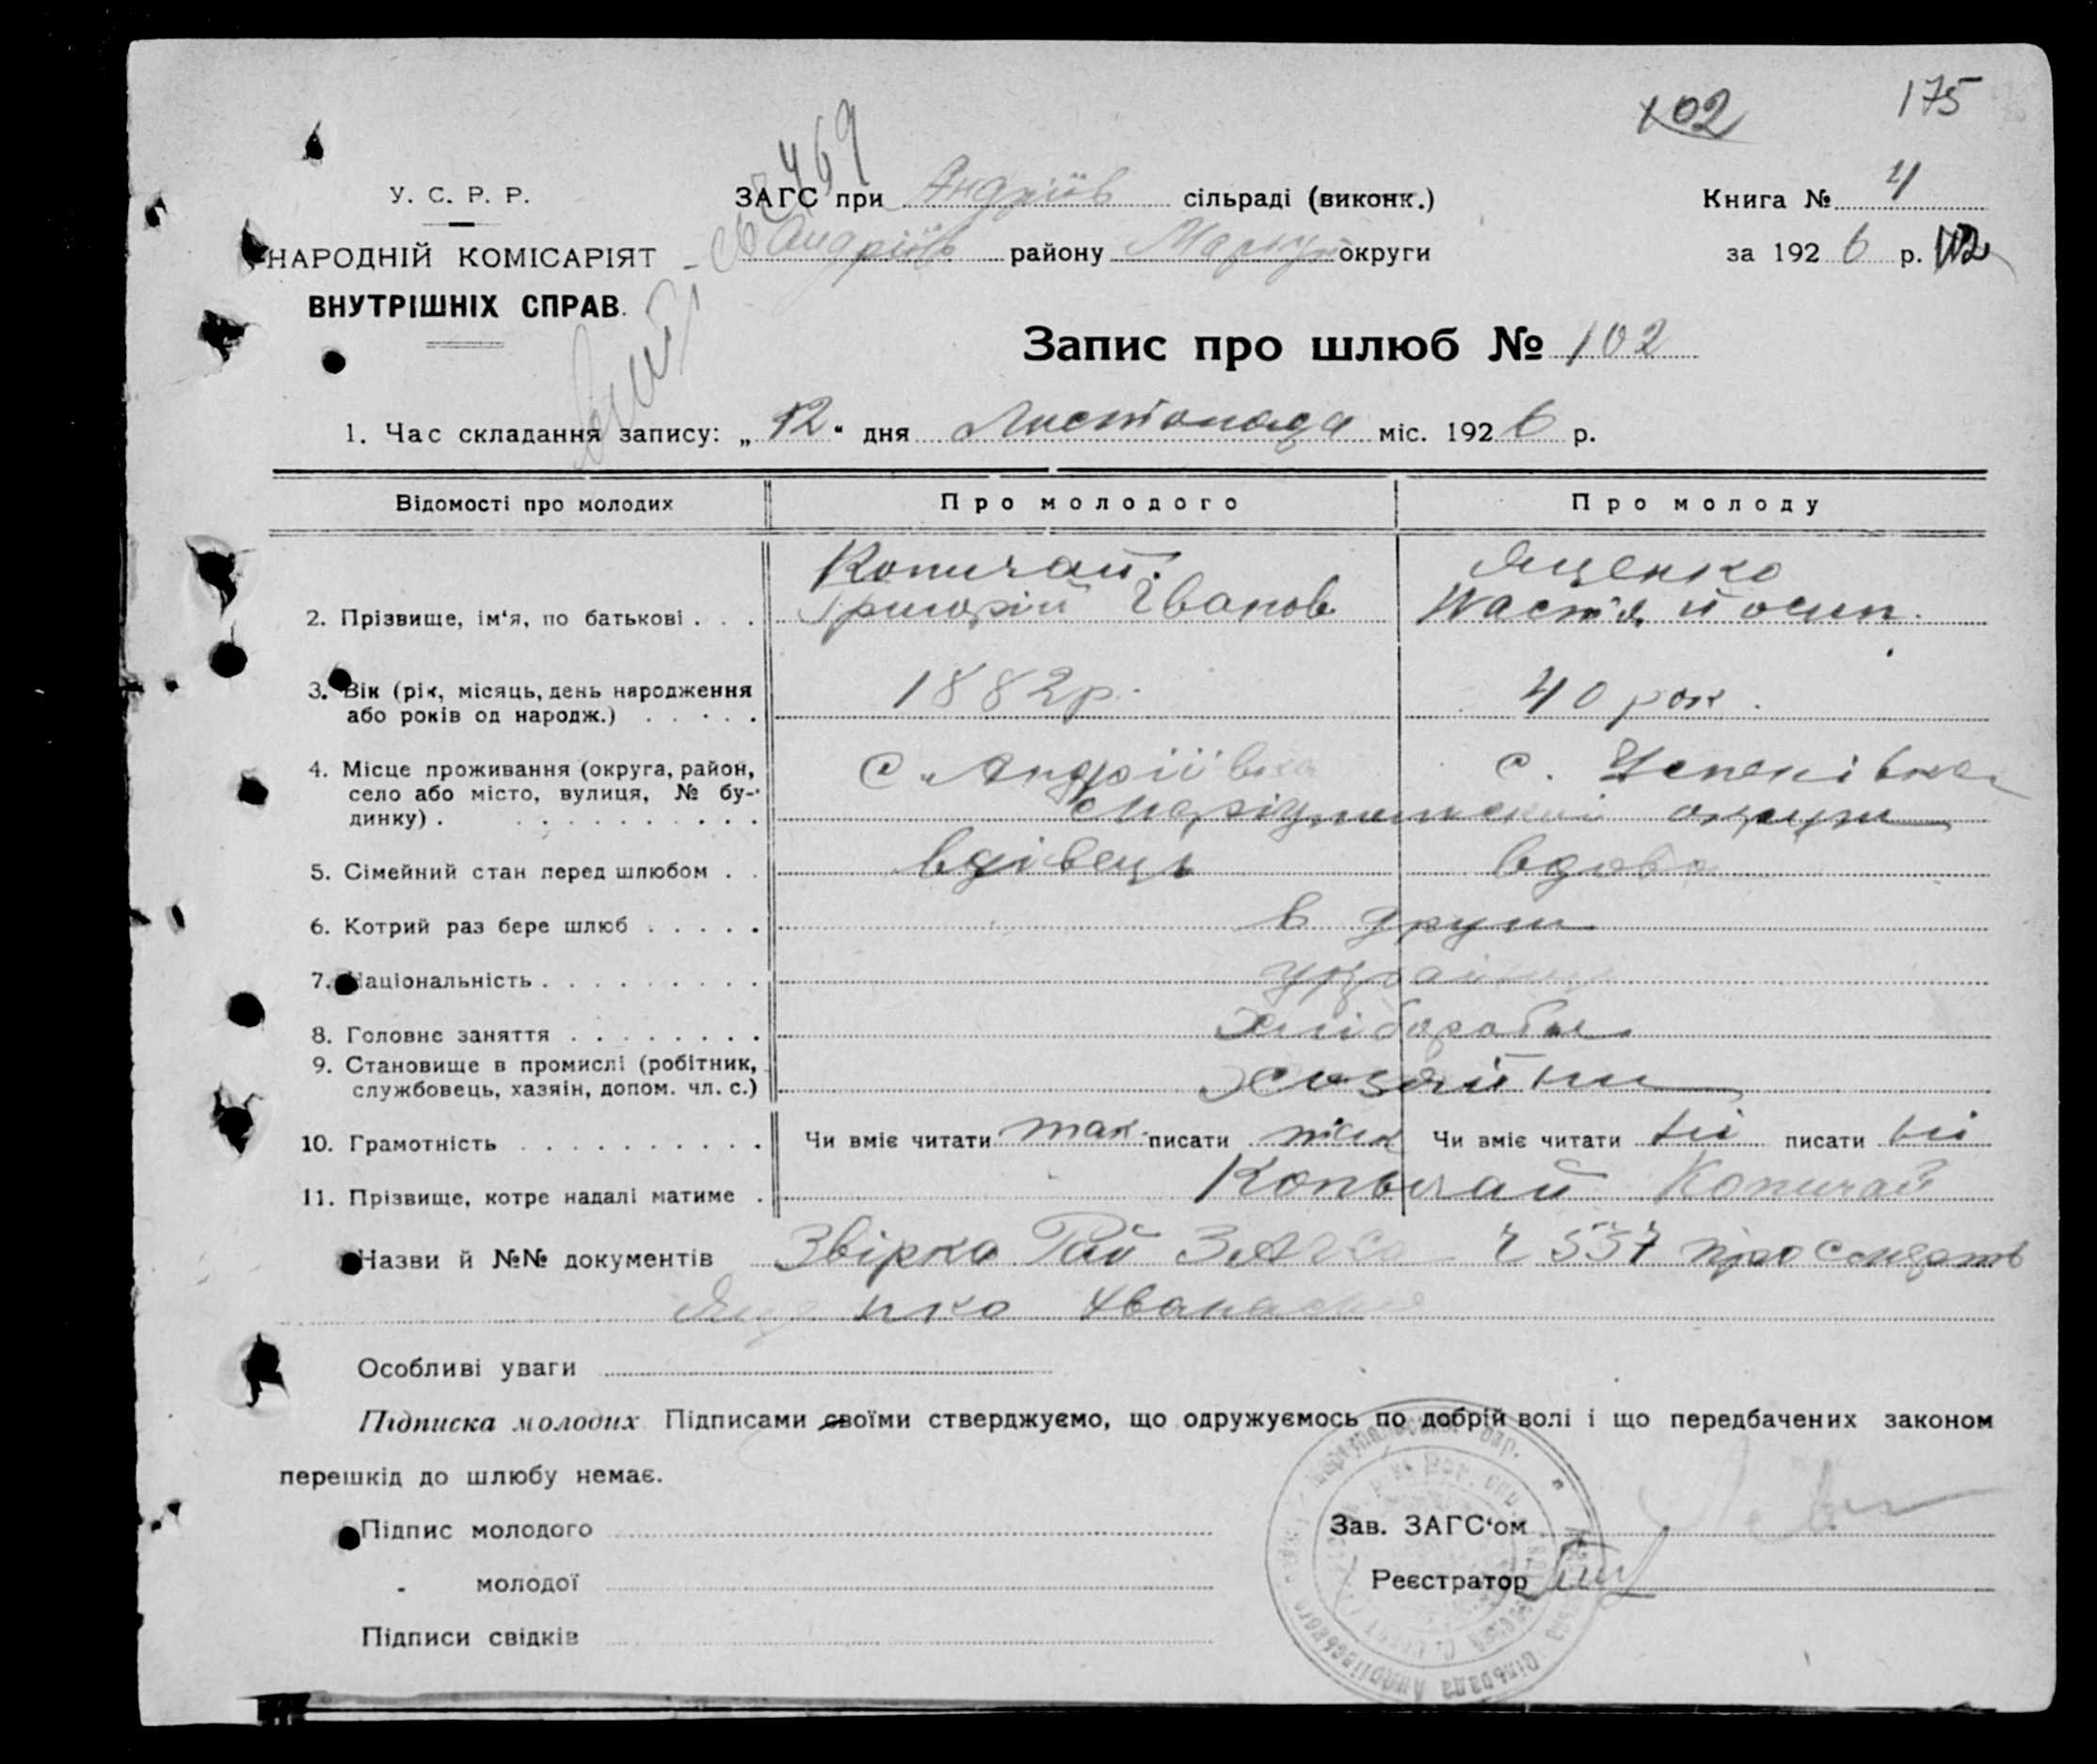 102 175
469
У. С. Р. Р.
ЗАГС при Андріїв сільраді (виконк.)
Книга № 4
НАРОДНІЙ КОМІСАРІЯТ
Андріїв району Маріуп округи
за 1926 р. 102
ВНУТРІШНІХ СПРАВ.
Запис про шлюб № 102
1. Час складання запису: „12“ дня Листопада міс. 1926 р.
Відомості про молодих Про молодого Про молоду
Копичай Ященко
2. Прізвище, ім‘я, по батькові . . . Григорій Іванов Настя Йосип.
3. Вік (рік, місяць, день народження 1882р. 40 рок.
або років од народж.) . . . . .
4. Місце проживання (округа, район, с. Андріївка с. Успенівка
село або місто, вулиця, № бу-
динку) . . . . . . . . . . . Маріупільської округи
5. Сімейний стан перед шлюбом . . вдівець вдова
6. Котрий раз бере шлюб . . . . . в друге
7. Національність . . . . . . . . . україн
8. Головне заняття . . . . . . . . Хлібороби
9. Становище в промислі (робітник,
службовець, хазяін, допом. чл. с.) Хозяїни
10. Грамотність . . . . . . . . . . Чи вміє читати так писати так Чи вміє читати ні писати ні
11. Прізвище, котре надалі матиме . Копичай Копичай
Назви й №№ документів Звірка Рай ЗАГСа Ч 537 про смерть
Ященко
Особливі уваги
Підписка молодих Підписами своїми стверджуємо, що одружуємось по добрій волі і що передбачених законом
перешкід до шлюбу немає.
Підпис молодого
Зав. ЗАГС‘ом
„ молодої
Реєстратор
Підписи свідків